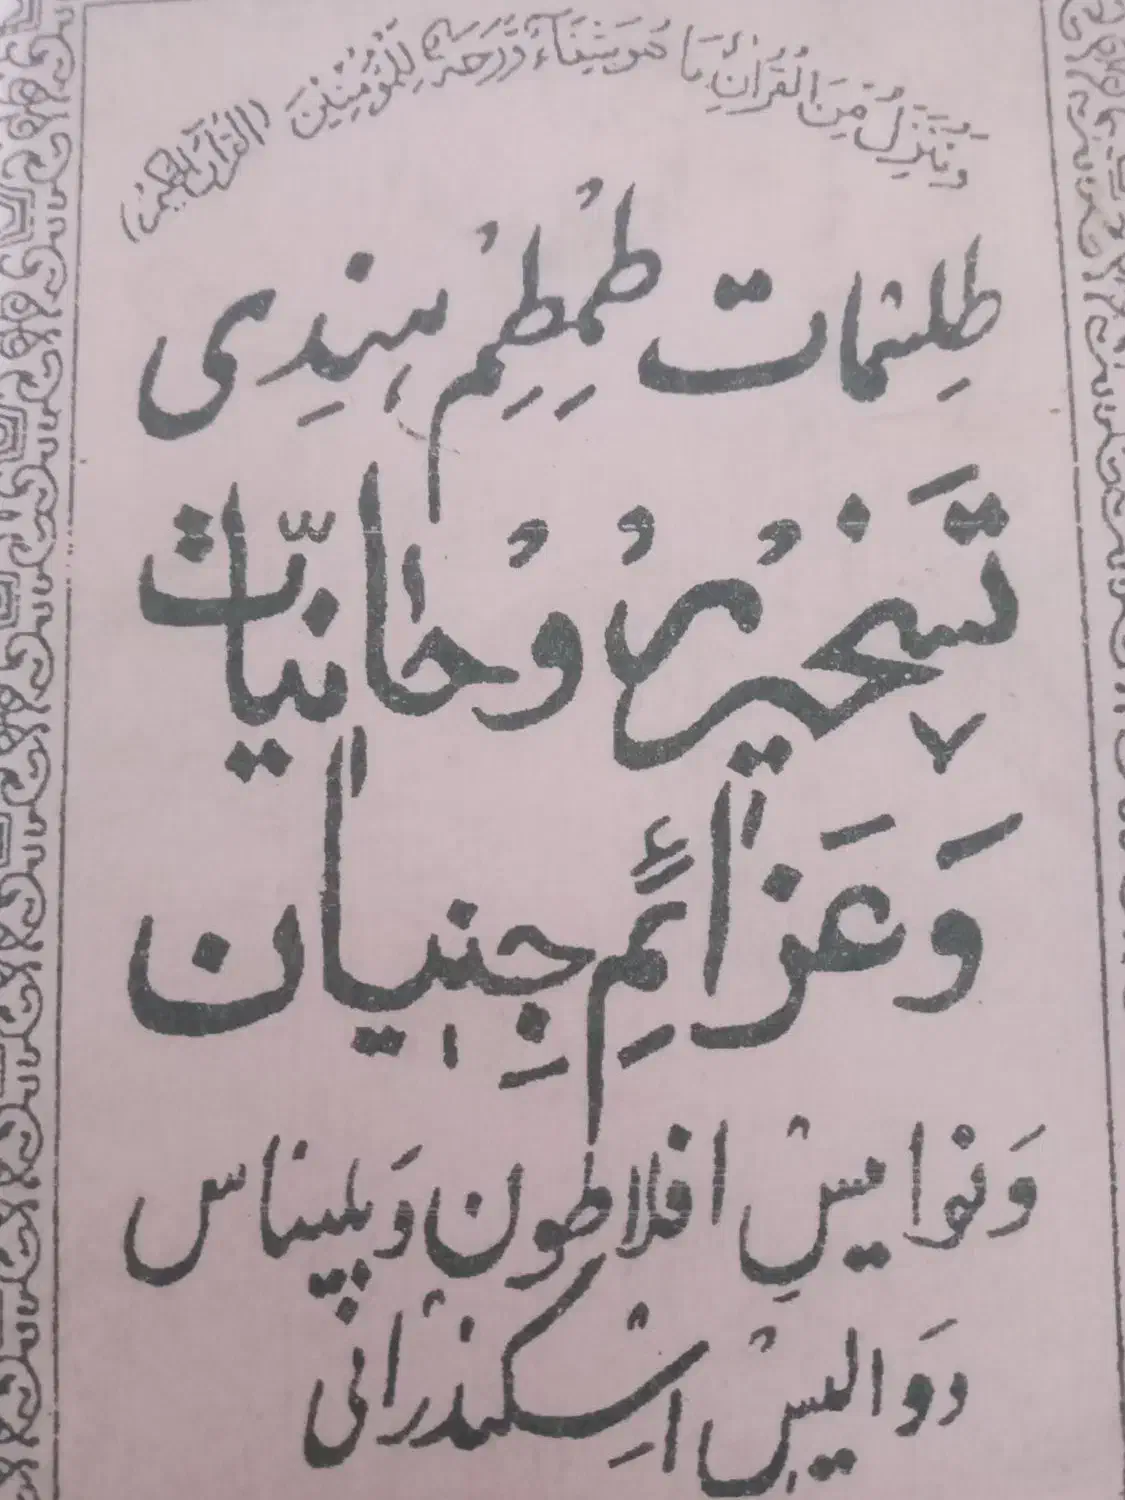 وَنُنَزِّلُ مِنَ الْقُرْاٰنِ مَا هُوَ شِفَآءٌ وَّرَحْمَةٌ لِّلْمُؤْمِنِيْنَ (القرآن الحکیم)
طِلِسْمَات طُمْطُمِ ہِنْدِی
تَسْخِیْرِ رُوْحَانِیَّات
وَعَزَائِمِ جِنِّیَان
وَنْوَامِیْسِ افلاطون وَ بلیناس
وَوَالِیْس اِسْکنْدرانی